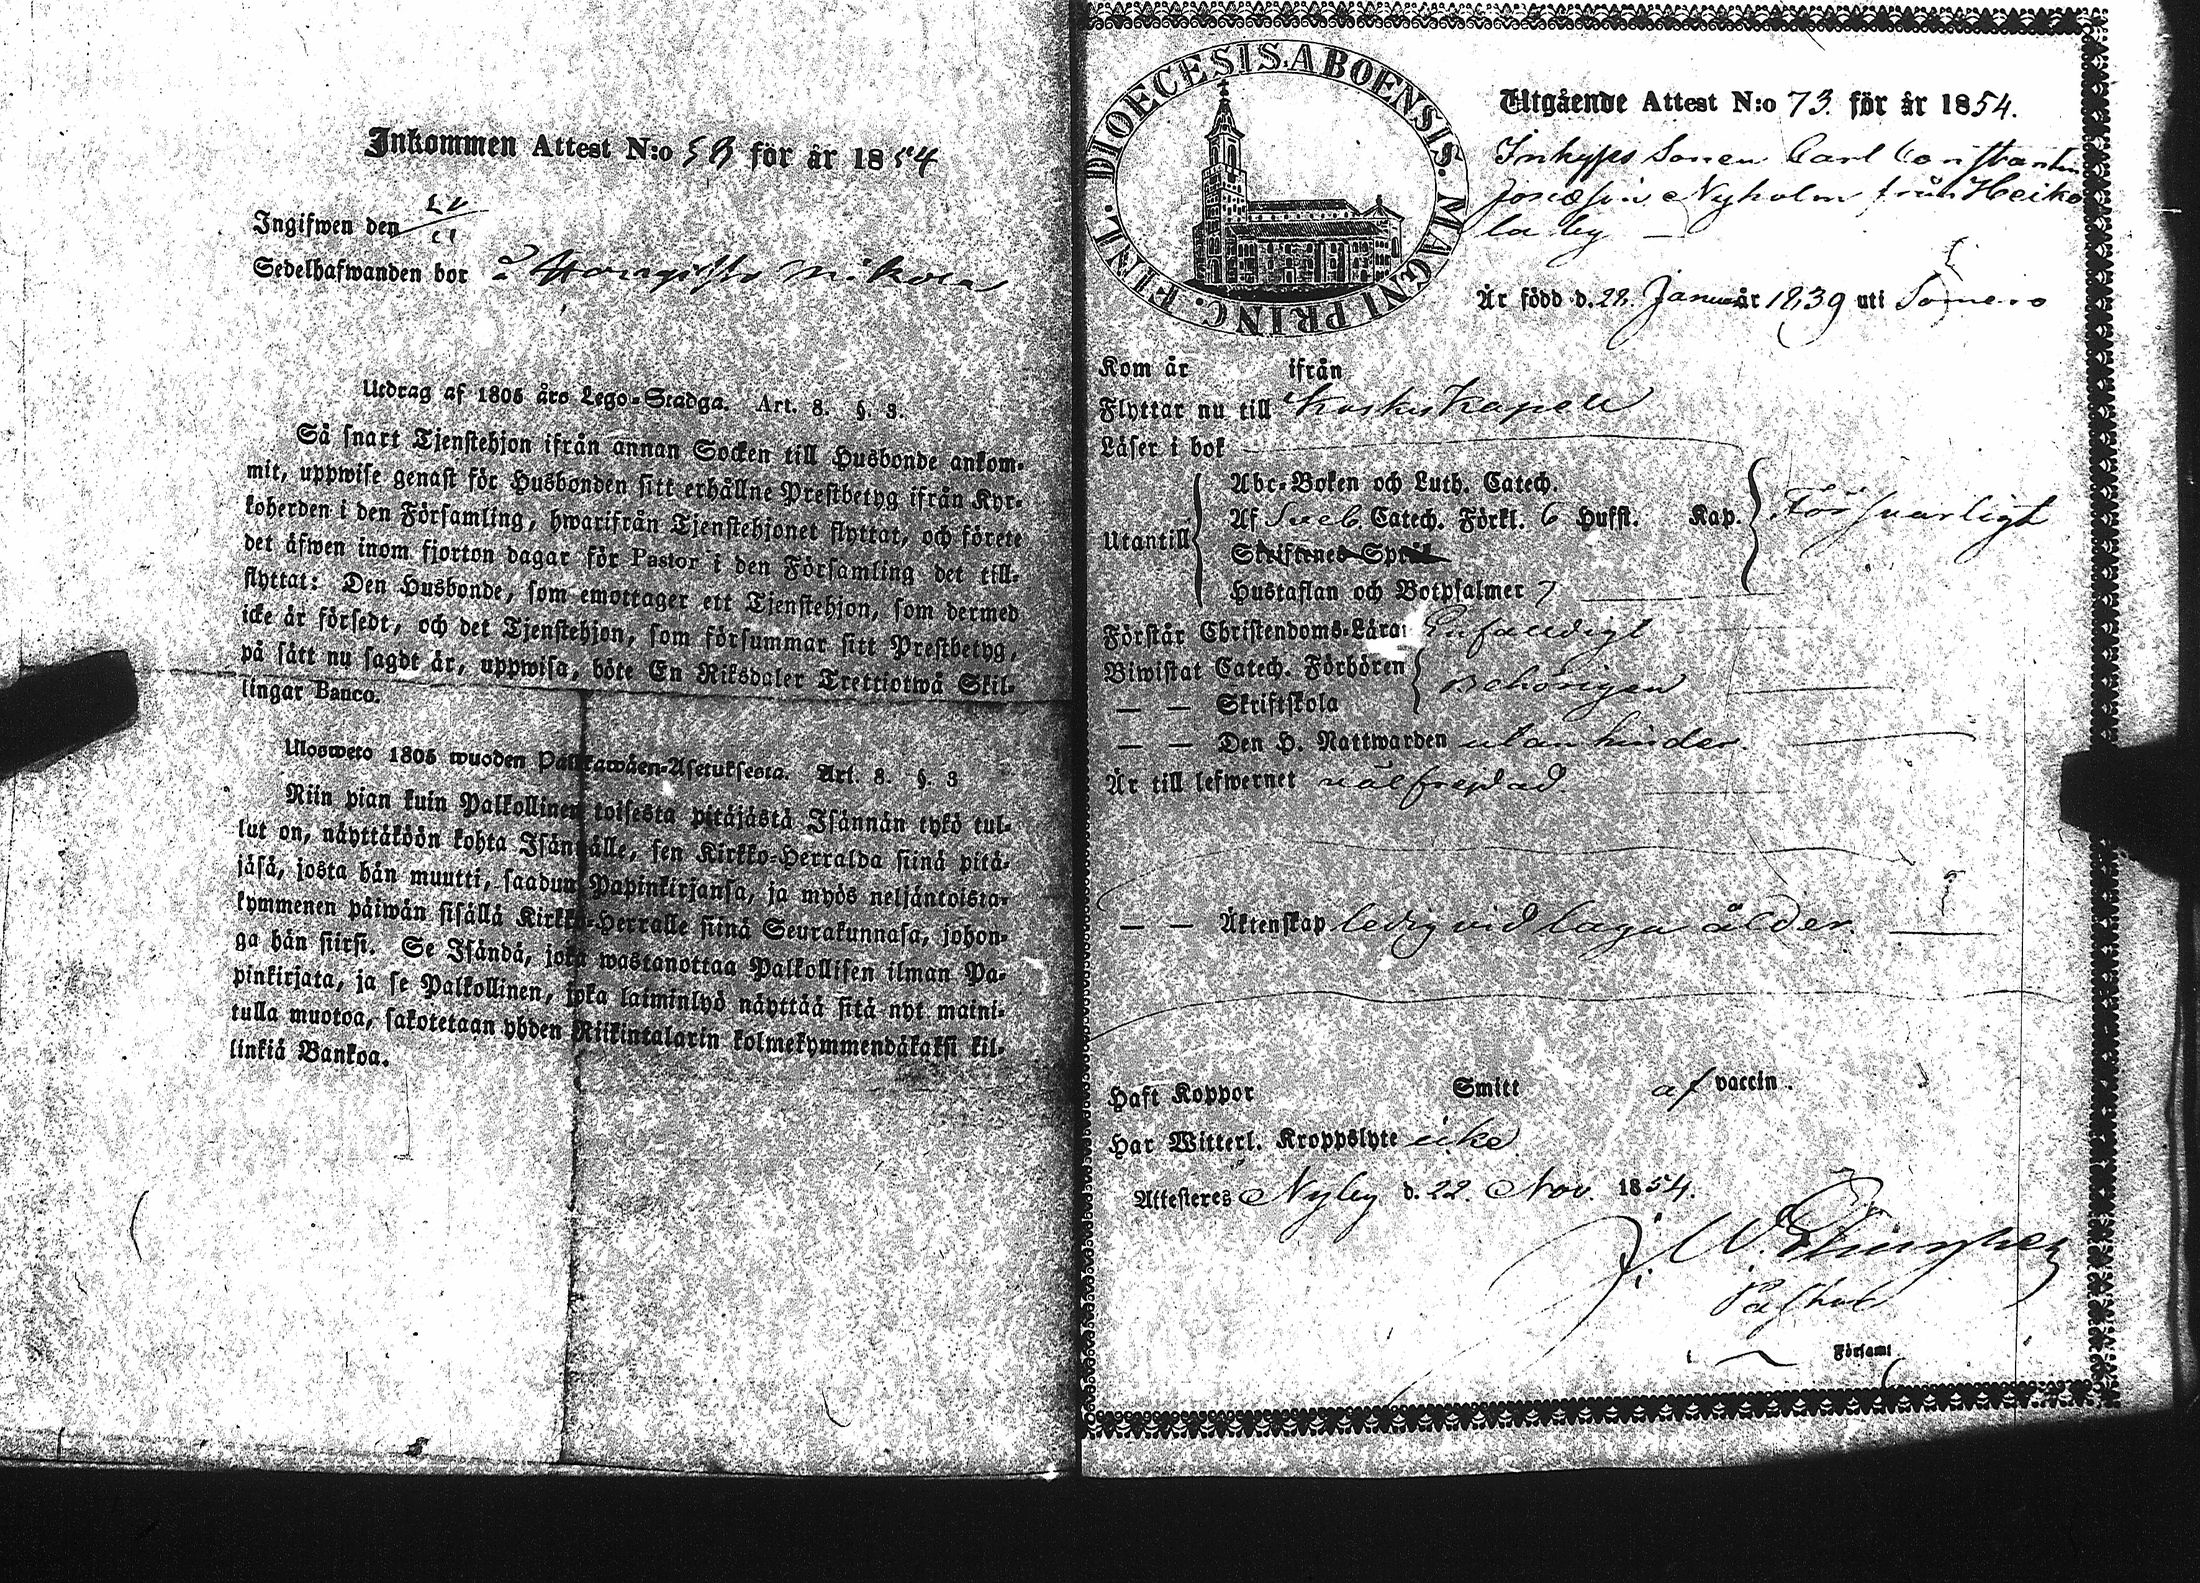 Inkommen Attest N:o 58 för år 1854
Ingifwen den
Sedelhafwanden bor
Utdrag af 1805 års Lego-Stadga. Art. 8. §. 3.
Så snart Tjenstehjon ifrån annan Socken till Husbonde ankom-
mit, uppwise genast för Husbonden sitt erhållne Prestbetyg ifrån Kyr-
koherden i den Församling, hwarifrån Tjenstehjonet flyttat, och förete
det äfwen inom fjorton dagar för Pastor i den Församling det till-
flyttat: Den Husbonde, som emottager ett Tjenstehjon, som dermed
icke är försedt, och det Tjenstehjon, som försummar sitt Prestbetyg,
på sätt nu sagdt är, uppwisa, böte En Riksdaler Trettiotwå Skil-
lingar Banco.
Ulosweto 1805 wuoden Palkawäen-Asetuksesta. Art. 8. §. 3
Niin pian kuin Palkollinen toisesta pitäjästä Isännän tykö tul-
lut on, näyttäköön kohta Isännälle, sen Kirkko-Herralda siinä pitä-
jäsä, josta hän muutti, saadun Papinkirjansa, ja myös neljäntoista-
kymmenen päiwän sisällä Kirkko-Herralle siinä Seurakunnasa, johon-
ga hän siirsi. Se Isändä, joka wastanottaa Palkollisen ilman Pa-
pinkirjata, ja se Palkollinen, joka laiminlyö näyttää sitä nyt maini-
tulla muotoa, sakotetaan yhden Riikintalarin kolmekymmendäkaksi kil-
linkiä Bankoa.
DIOECESIS. ABOENSIS. MAGNI PRINC. FINL.
Utgående Attest N:o 73. för år 1854.
Inhyses Sonen Carl Constantin
Josefsin Nyholm från Heiko
la by
Är född d. 28. Januar 1839 uti Somero
Kom år ifrån
Flyttar nu till Koskis Kapell
Läser i bok
Abc-Boken och Luth. Catech.
Utantill Af Sveb. Catech. Förkl. 6 Hufst. Kap. Försvarligt
Skriftenes Språk
Hustaflan och Botpsalmer 7
Förstår Christendoms-Läran Enfaldigt
Biwistat Catech. Förhören Behörigen
— — Skriftskola
— — Den H. Nattwarden utan hinder.
Är till lefwernet välfrejdad.
— — Äktenskap ledig vid laga ålder.
Haft Koppor Smitt af vaccin.
Har Witterl. Kroppslyte icke
Attesteres Nyby d. 22. Nov. 1854.
J. W.
Pastor
i Församl